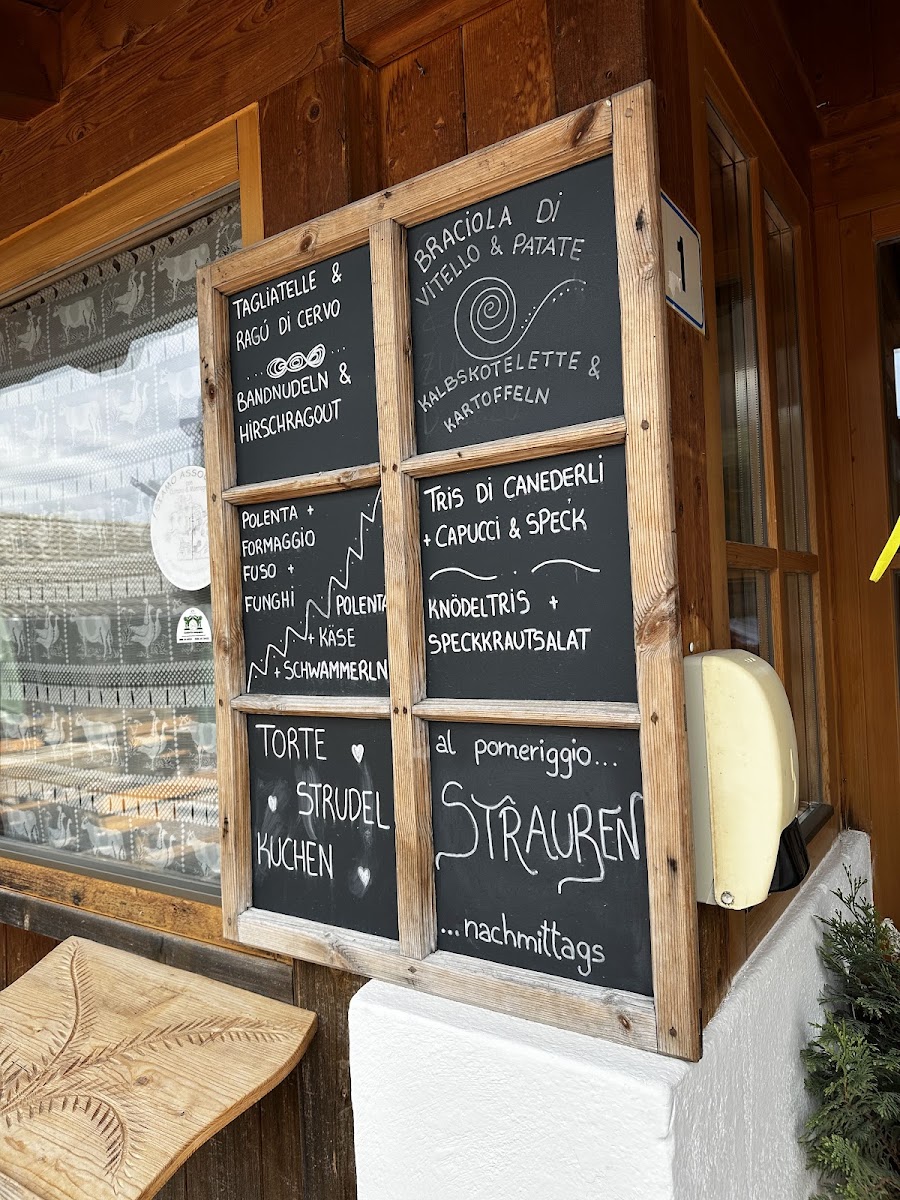 TAGLIATELLE &
RAGÚ DI CERVO
BANDNUDELN &
HIRSCHRAGOUT
BRACIOLA DI
VITELLO & PATATE
KALBSKOTELETTE &
KARTOFFELN
POLENTA +
FORMAGGIO
FUSO +
FUNGHI
POLENTA
+ KÄSE
+ SCHWAMMERLN
TRIS DI CANEDERLI
+ CAPUCCI & SPECK
KNÖDELTRIS +
SPECKKRAUTSALAT
TORTE
STRUDEL
KUCHEN
al pomeriggio...
STRAUBEN
...nachmittags
1